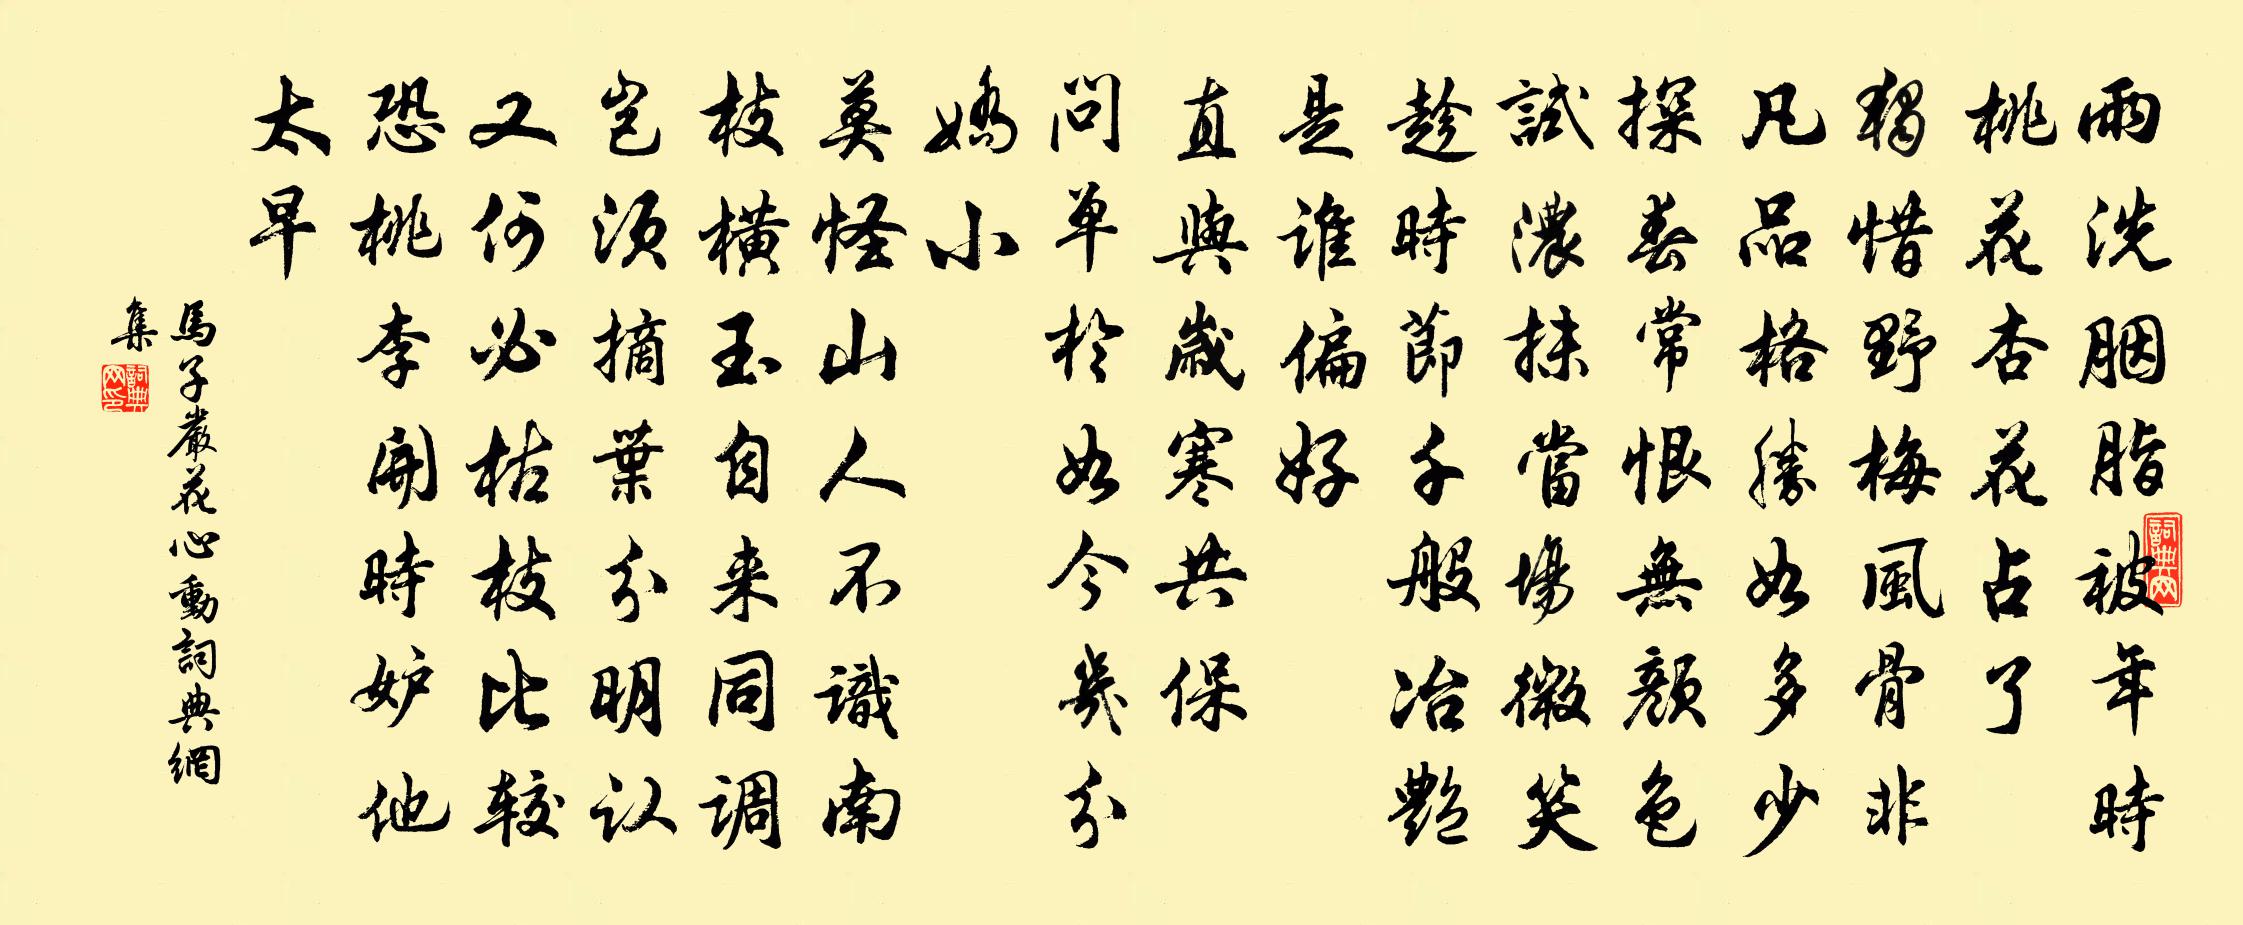 雨洗胭脂被年時
桃花杏花占了
獨惜野梅風骨非
凡品格勝如多少
探春常恨無顏色
試濃抹當場微笑
趁時節千般冶艷
是誰偏好
直與歲寒共保
問单於如今幾分
嬌小
莫怪山人不識南
枝橫玉自来同调
岂須摘葉分明认
又何必枯枝比较
恐桃李開時妒他
太早
馬子嚴花心動詞典網
集
詞典网
詞典网印